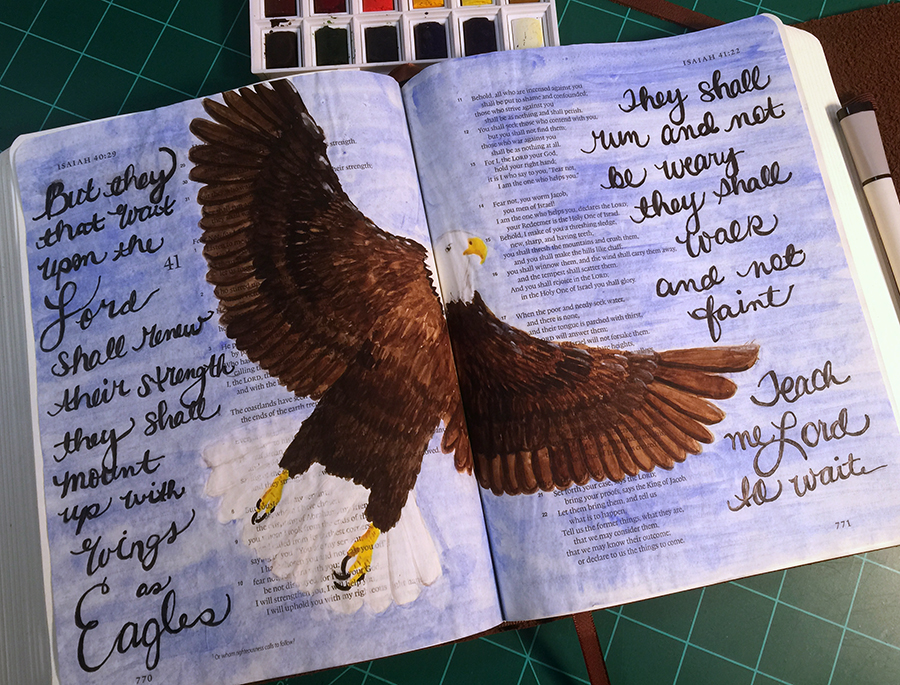 ISAIAH 40:29
But they
that wait
upon the
Lord
shall renew
their strength
they shall
mount
up with
wings
as
Eagles
41
strength.
their strength;
The coastlands have
the ends of the earth
10 fear not
be not
I will strengthen you, I will help
I will uphold you with my
770
ISAIAH 41:22
11 Behold, all who are incensed against you
shall be put to shame and confounded;
those who strive against you
shall be as nothing and shall perish.
12 You shall seek those who contend with you,
but you shall not find them;
those who war against you
shall be as nothing at all.
13 For I, the LORD your God,
hold your right hand;
it is I who say to you, "Fear not,
I am the one who helps you."
14 Fear not, you worm Jacob,
you men of Israel!
I am the one who helps you, declares the LORD;
your Redeemer is the Holy One of Israel.
Behold, I make of you a threshing sledge,
new, sharp, and having teeth;
you shall thresh the mountains and crush them,
and you shall make the hills like chaff;
16 you shall winnow them, and the wind shall carry them away,
and the tempest shall scatter them.
And you shall rejoice in the LORD;
in the Holy One of Israel you shall glory.
17 When the poor and needy seek water,
and there is none,
and their tongue is parched with thirst,
LORD will answer them;
Israel will not forsake them.
heights,
21 Set forth your case, says the LORD;
bring your proofs, says the King of Jacob.
22 Let them bring them, and tell us
what is to happen.
Tell us the former things, what they are,
that we may consider them,
that we may know their outcome;
or declare to us the things to come.
They shall
run and not
be weary
they shall
walk
and not
faint
Teach
me Lord
to wait
771